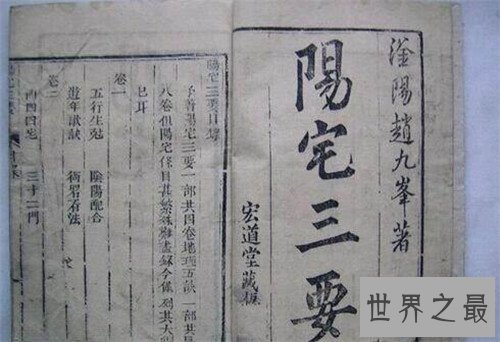 滏陽趙九峯著
陽宅三要
宏道堂藏板
陽宅三要目錄
予著陽宅三要一部共四卷地理五訣一部
八卷但陽宅條目甚繁殊難盡錄今僅列其大
已耳
卷一
五行生剋 陰陽配合
遊年歌訣 衙署看法
卷二
四宅 三十二門
世界之最